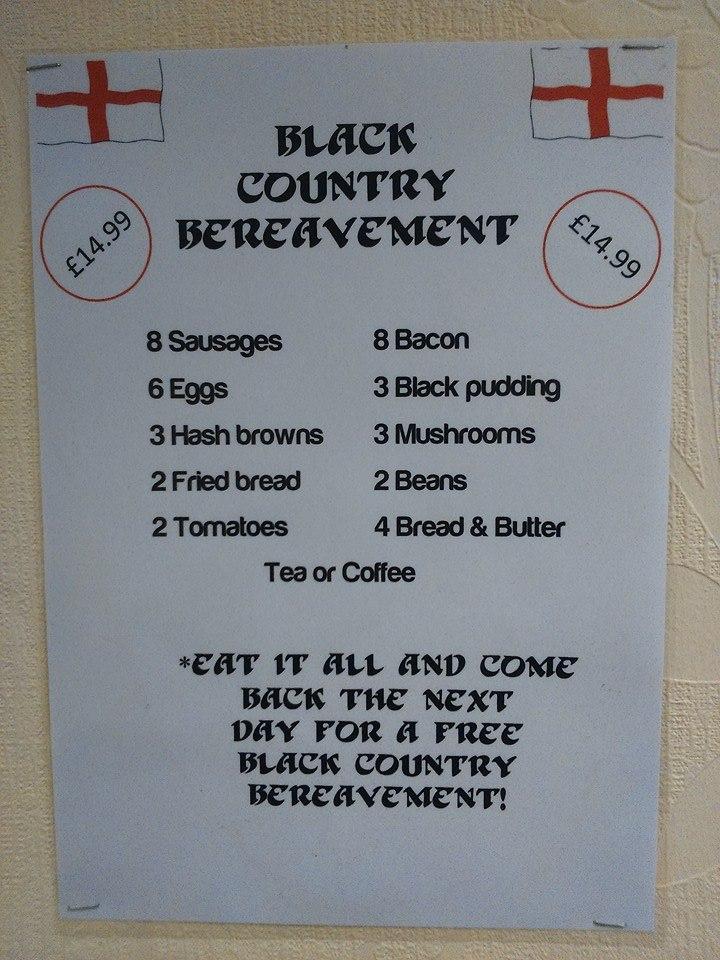 BLACK
COUNTRY
BEREAVEMENT
£14.99
£14.99
8 Sausages 8 Bacon
6 Eggs 3 Black pudding
3 Hash browns 3 Mushrooms
2 Fried bread 2 Beans
2 Tomatoes 4 Bread & Butter
Tea or Coffee
*EAT IT ALL AND COME
BACK THE NEXT
DAY FOR A FREE
BLACK COUNTRY
BEREAVEMENT!